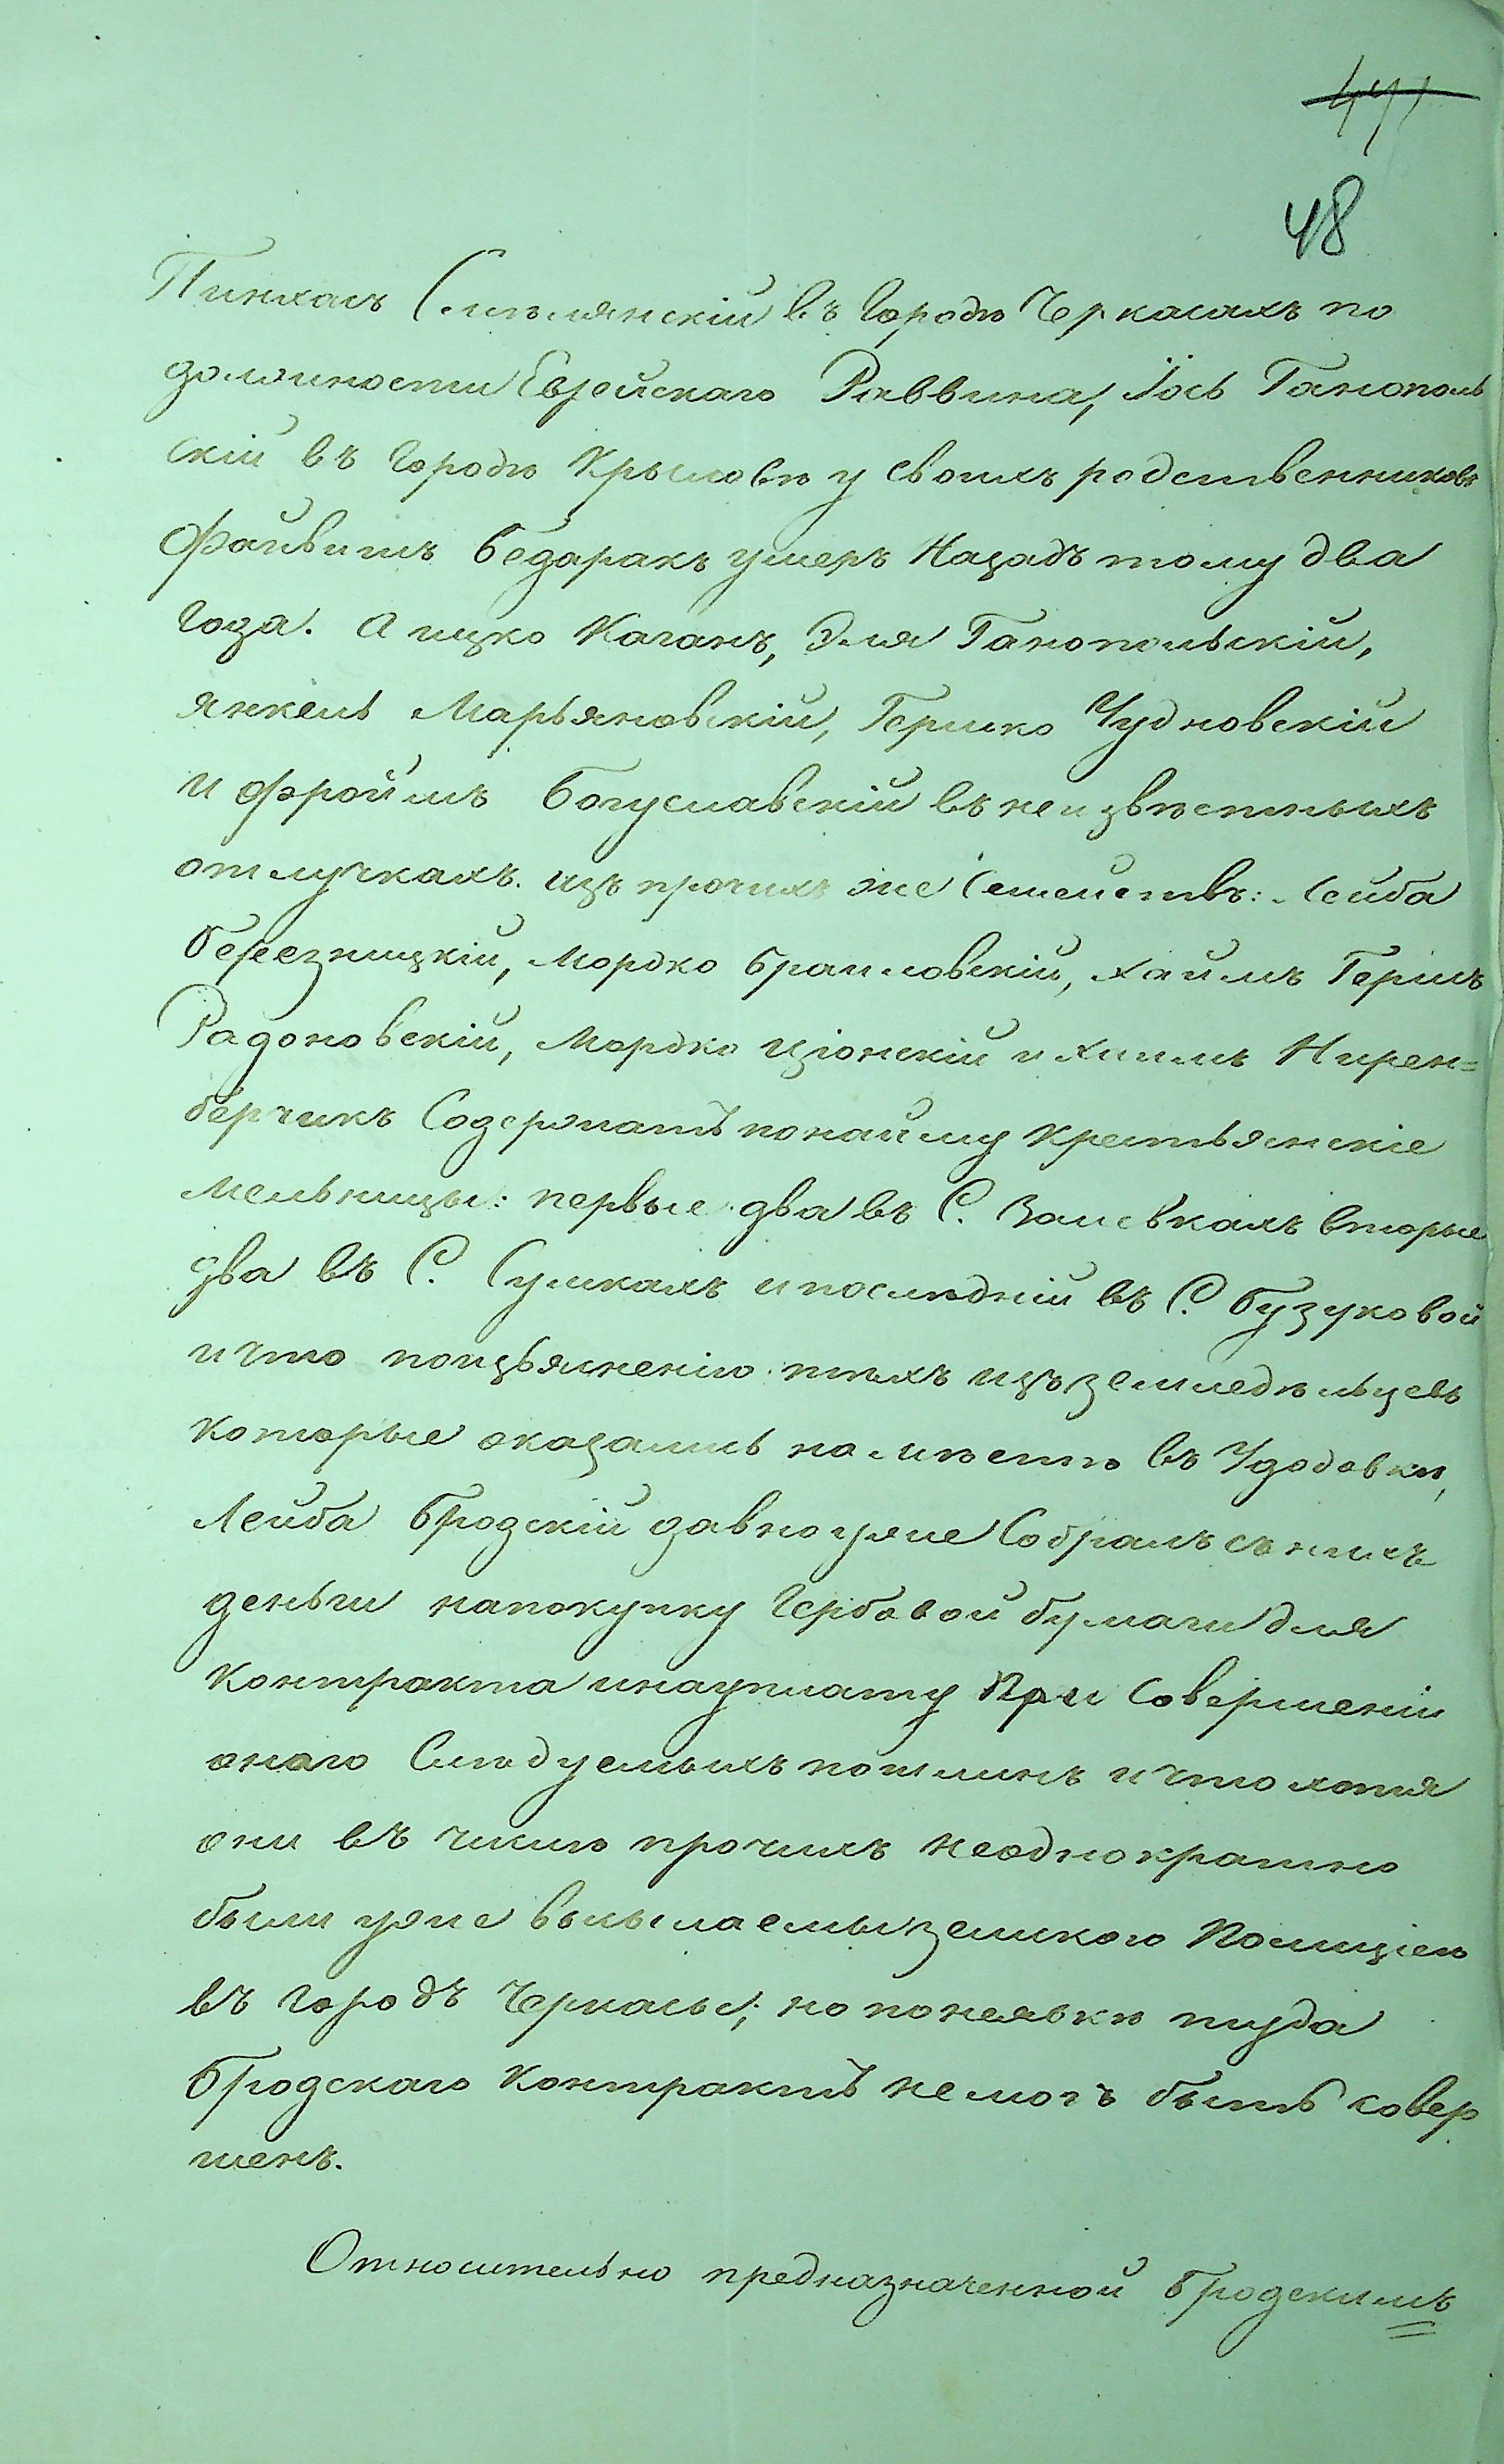 47
48
Пинхасъ Смѣлянскій въ городѣ Черкасахъ по
должности Еврейскаго Раввина, Іось Ганополь
скій въ городѣ Крыловѣ у своихъ родственниковъ
Файвишъ Бедаракъ умеръ назадъ тому два
года. А ицко Каганъ, Эля Ганопольскій,
янкель Марьяновскій, Гершко Чудновскій
и фройимъ Богуславскій въ неизвѣстныхъ
отлучкахъ. изъ прочихъ же семействъ: Лейба
Березницкій, Мордко Браиловскій, Хаимъ Гершъ
Радоновскій, Мордко Ціонскій и Хаимъ Нирен=
берчикъ Содержатъ понайму крестьянскіе
мельницы: первые два въ С. Заишевкахъ вторые
два въ С. Сушкахъ и послѣдній въ С. Бузуковой
и что поизъясненію тѣхъ изъ земледѣльцевъ
которые оказались намѣстѣ въ Удодовки,
Лейба Бродскій давно уже собралъ съ нихъ
деньги напокупку гербовой бумаги для
контракта инауплату при совершеніи
онаго Слѣдуемыхъ пошлинъ и что хотя
они въ числѣ прочихъ неоднократно
были уже высылаемы земскою Полиціею
въ городъ Черкасы; но понеявкѣ туда
Бродскаго контрактъ немогъ быть совер
шенъ.
Относительно предназначенной Бродскимъ